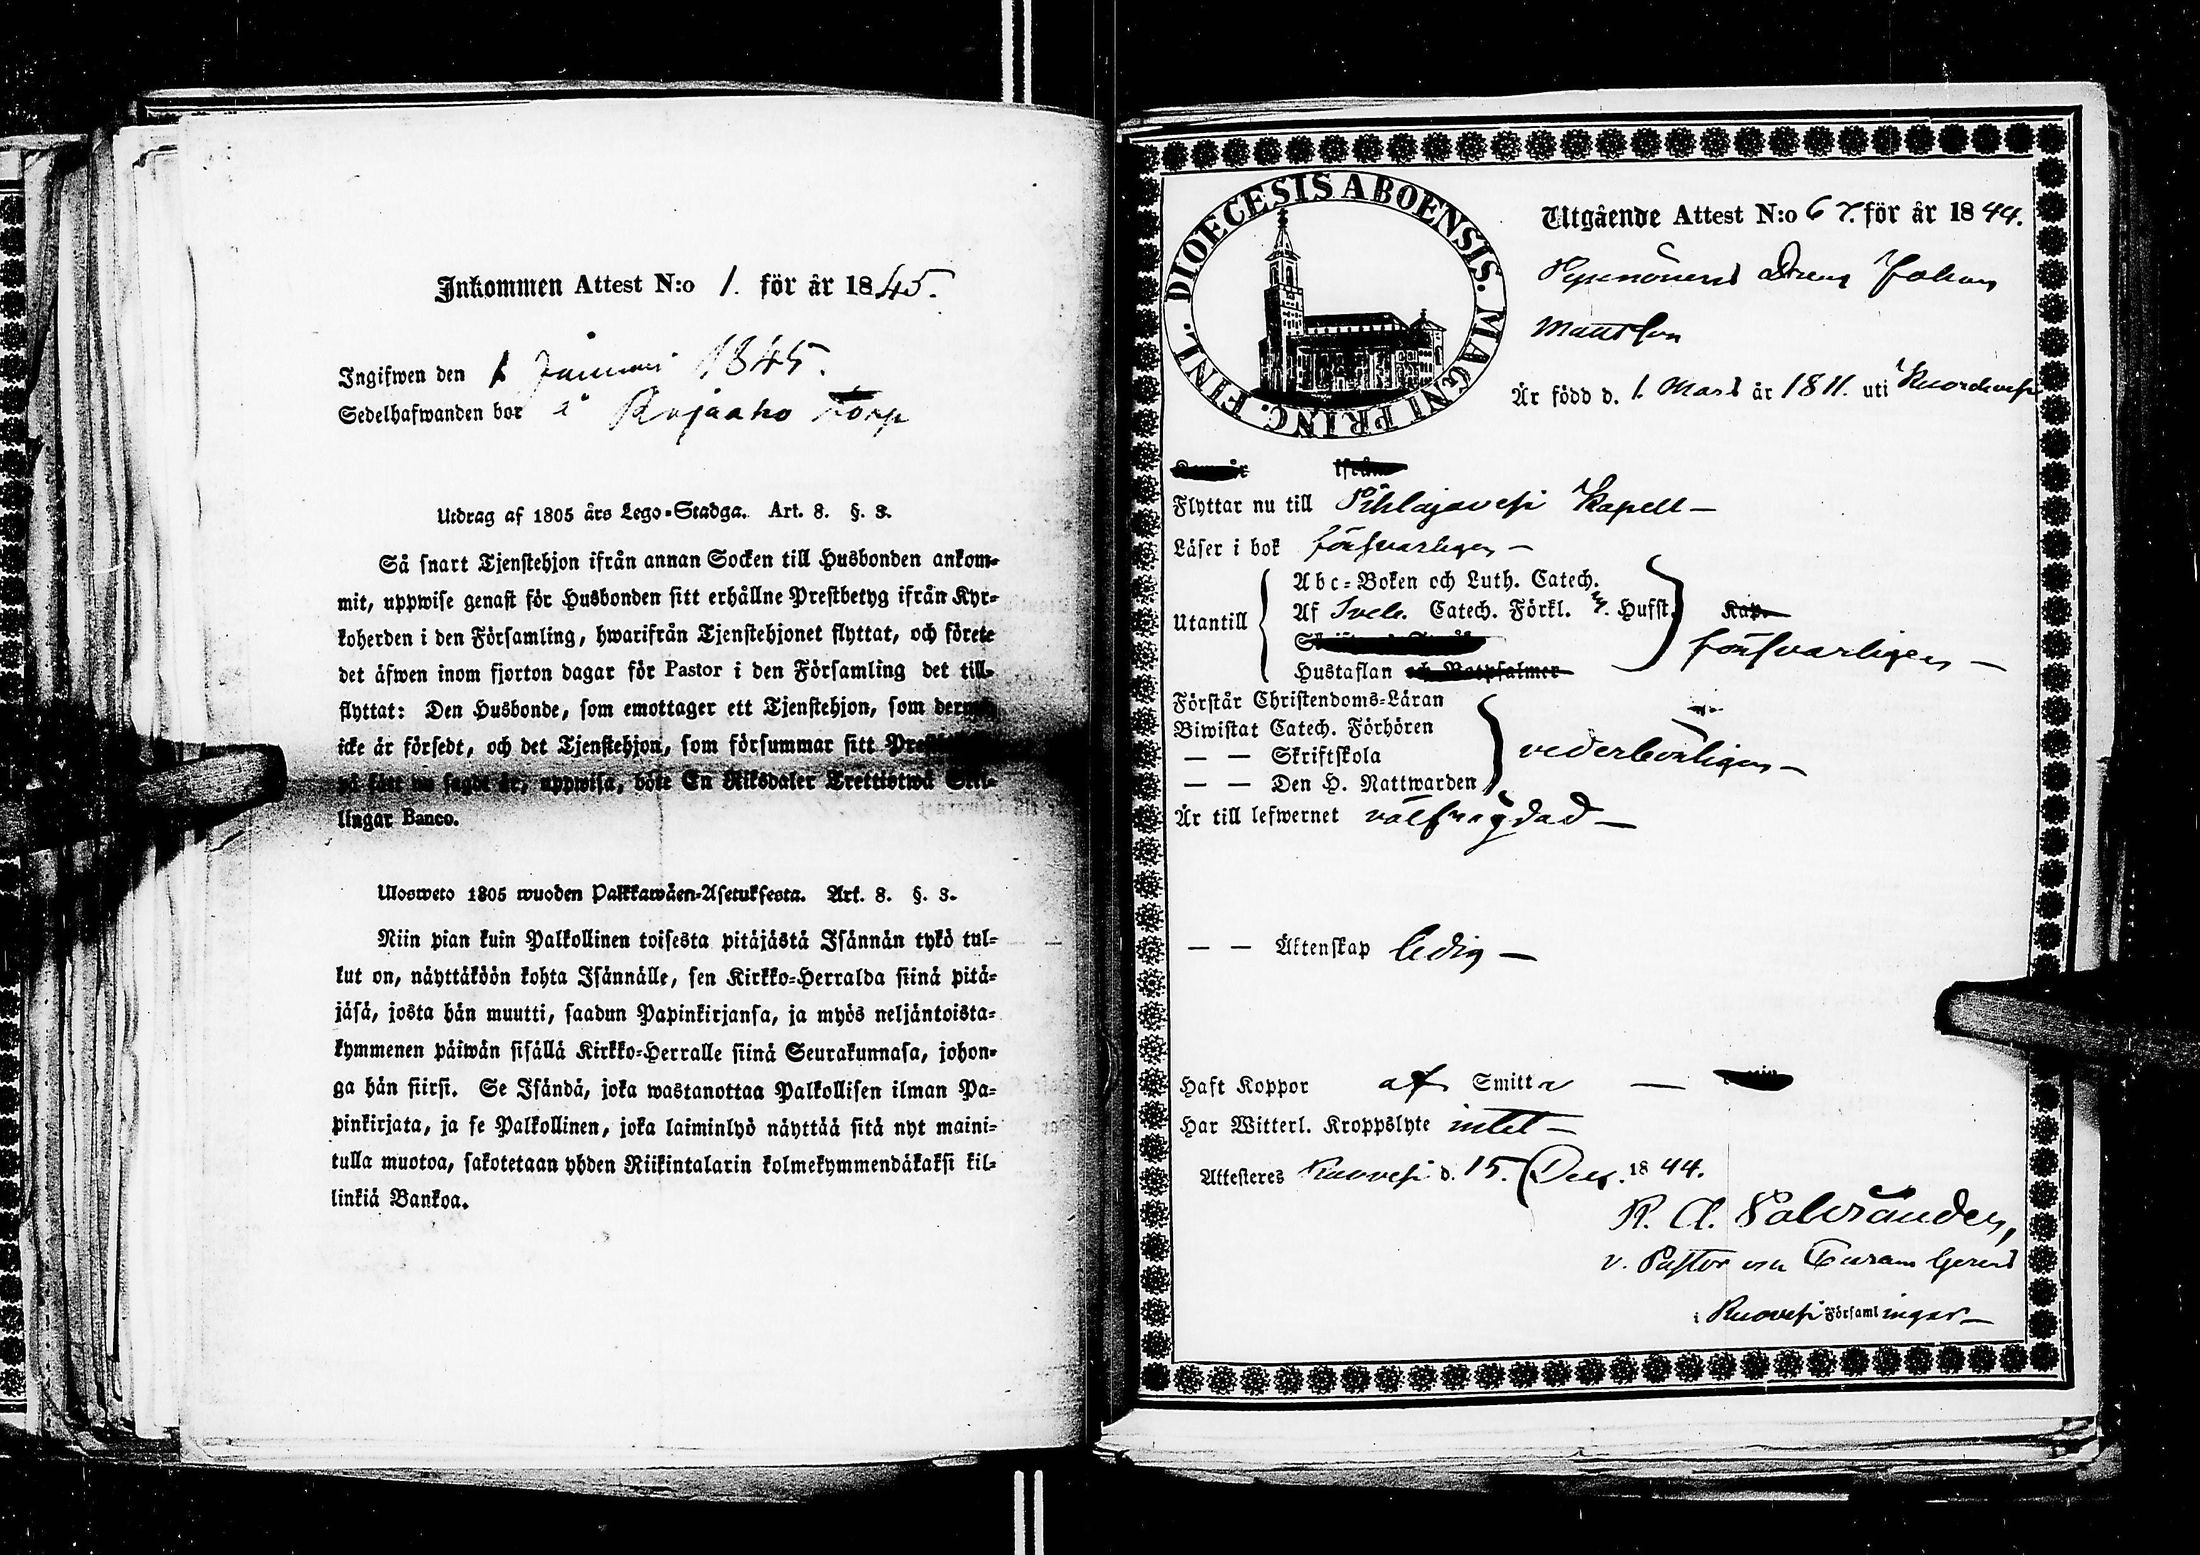 Inkommen Attest N:o 1. för år 1845.
Ingifwen den 1 Januari 1845.
Sedelhafwanden bor å Rajaaho Torp
Utdrag af 1805 års Lego-Stadga. Art. 8. §. 3.
Så snart Tjenstehjon ifrån annan Socken till Husbonden ankom-
mit, uppwise genast för Husbonden sitt erhållne Prestbetyg ifrån Kyr-
koherden i den Församling, hwarifrån Tjenstehjonet flyttat, och förete
det äfwen inom fjorton dagar för Pastor i den Församling det till-
flyttat: Den Husbonde, som emottager ett Tjenstehjon, som dermed
icke är försedt, och det Tjenstehjon, som försummar sitt
på sätt nu sagdt är, uppwisa, böte En Riksdaler Trettiotwå Skil-
lingar Banco.
Ulosweto 1805 wuoden Palkkawäen-Asetuksesta. Art. 8. §. 3.
Niin pian kuin Palkollinen toisesta pitäjästä Isännän tykö tul-
lut on, näyttäköön kohta Isännälle, sen Kirkko-Herralda siinä pitä-
jäsä, josta hän muutti, saadun Papinkirjansa, ja myös neljäntoista-
kymmenen päiwän sisällä Kirkko-Herralle siinä Seurakunnasa, johon-
ga hän siirsi. Se Isändä, joka wastanottaa Palkollisen ilman Pa-
pinkirjata, ja se Palkollinen, joka laiminlyö näyttää sitä nyt maini-
tulla muotoa, sakotetaan yhden Riikintalarin kolmekymmendäkaksi kil-
linkiä Bankoa.
DIOECESIS ABOENSIS. MAGNI PRINC. FINL.
Utgående Attest N:o 67. för år 1844.
Dreng Johan
Mattsson
Är född d. 1. Mars år 1811. uti
ifrån
Flyttar nu till Pihlajavesi Kapell —
Läser i bok försvarligen —
Abc-Boken och Luth. Catech.
Utantill Af Sveb. Catech. Förkl. Hufst. Kap.
försvarligen —
Hustaflan och Botpsalmer
Förstår Christendoms-Läran
Biwistat Catech. Förhören
— — Skriftskola vederbörligen —
— — Den H. Nattwarden
Är till lefwernet välfregdad —
— — Äktenskap ledig —
Haft Koppor af Smitta —
Har Witterl. Kroppslyte intet —
Attesteres Ruovesi d. 15. Dec. 1844.
v. Pastor
i Ruovesi Församlingar —